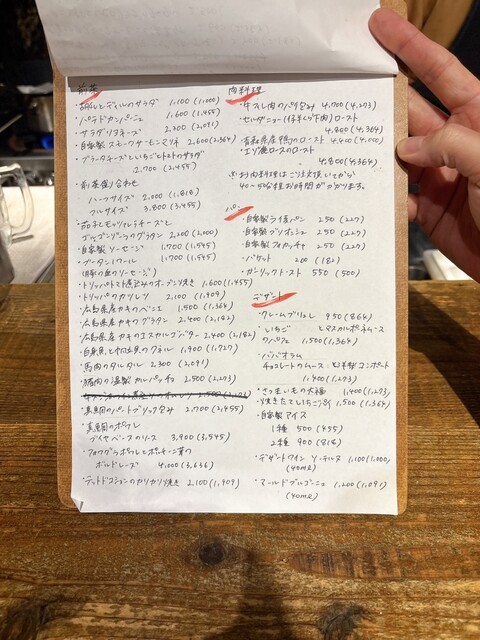 前菜
・胡瓜とディルのサラダ 1,100 (1,000)
・パテドカンパーニュ 1,600 (1,455)
・サラダリヨネーズ 2,300 (2,091)
・自家製スモークサーモンマリネ 2,600 (2,364)
・ブラータチーズといちごとトマトのサラダ
2,700 (2,455)
・前菜盛り合わせ
ハーフサイズ 2,000 (1,818)
フルサイズ 3,800 (3,455)
・茄子とモッツァレラチーズと
ゴルゴンゾーラのグラタン 2,200 (2,000)
・自家製ソーセージ 1,700 (1,545)
・ブーダンノワール 1,700 (1,545)
(豚の血のソーセージ)
・トリッパトマト煮込みのオーブン焼き 1,600 (1,455)
・トリッパのカツレツ 2,100 (1,909)
・広島県産カキのベニエ 1,500 (1,364)
・広島県産カキのグラタン 2,400 (2,182)
・広島県産カキのエスカルゴバター 2,400 (2,182)
・白身魚と帆立貝のクネル 1,900 (1,727)
・馬肉のタルタル 2,300 (2,091)
・猪肉の海製カルパッチョ 2,500 (2,273)
・真鯛のパートブリック包み 2,700 (2,455)
・真鯛のポワレ
ブイヤベースのソース 3,900 (3,545)
・フォワグラポワレとポルチーニ茸の
ボルドレーズ 4,000 (3,636)
・テットドコションのカリカリ焼き 2,100 (1,909)
肉料理
・牛ホホ肉のパイ包み 4,700 (4,273)
・セルダニョー(仔羊と牛肉)のロースト
4,800 (4,364)
・青森県産鴨のロースト 4,400 (4,000)
・エゾ鹿ロースのロースト
4,800 (4,364)
※お肉料理はご注文頂いてから
40〜50分程お時間がかかります。
パン
・自家製ライ麦パン 250 (227)
・自家製ブリオッシュ 250 (227)
・自家製フォカッチャ 250 (227)
・バケット 200 (182)
・ガーリックトースト 550 (500)
デザート
・クレームブリュレ 950 (864)
・いちごとマスカルポーネムース
のパフェ 1,500 (1,364)
・ババオラム
チョコレートのムース 自家製コンポート
1,400 (1,273)
・さつまいもの大福 1,400 (1,273)
・焼きたて 1,500 (1,364)
・自家製アイス
1種 500 (455)
2種 900 (818)
・デザートワイン ソーテルヌ 1,100 (1,000)
(40ml)
・マールドブルゴーニュ 1,200 (1,091)
(40ml)